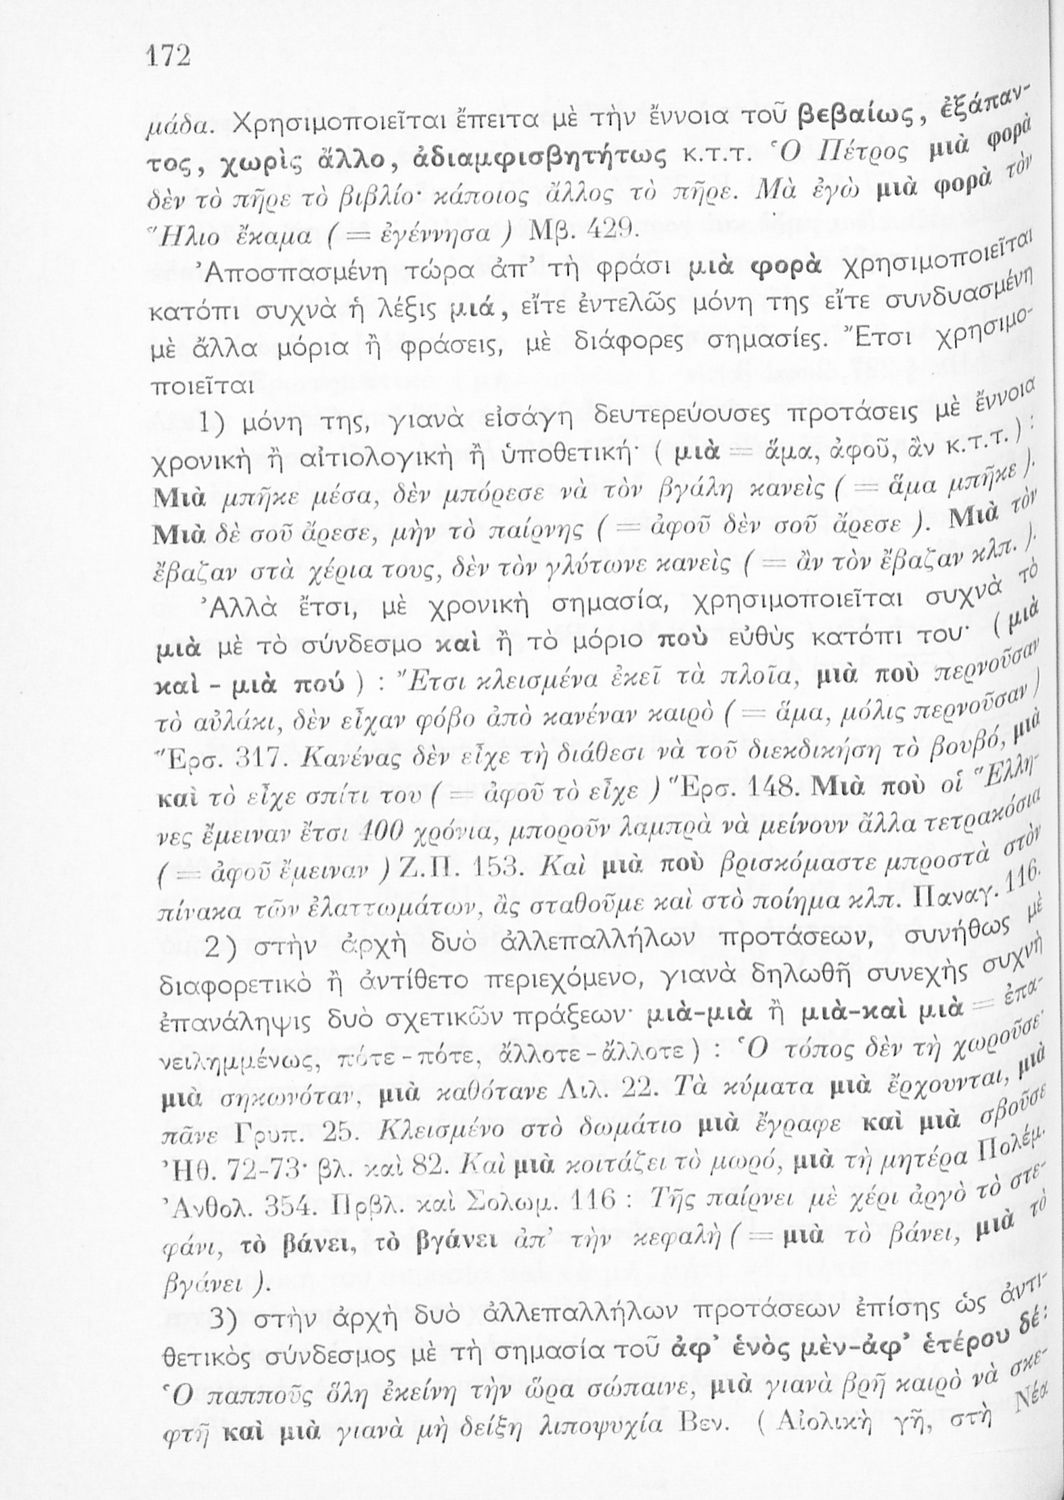 172
μάδα. Χρησιμοποιεῖται ἔπειτα μὲ τὴν ἔννοια τοῦ βεβαίως, ἐξάπαν-
τος, χωρὶς ἄλλο, ἀδιαμφισβητήτως κ.τ.τ. Ὁ Πέτρος μιὰ φορὰ
δὲν τὸ πῆρε τὸ βιβλίο· κάποιος ἄλλος τὸ πῆρε. Μὰ ἐγὼ μιὰ φορὰ τὸν
Ἥλιο ἔκαμα ( = ἐγέννησα ) Μβ. 429.
Ἀποσπασμένη τώρα ἀπ’ τὴ φράσι μιὰ φορὰ χρησιμοποιεῖται
κατόπι συχνὰ ἡ λέξις μιά, εἴτε ἐντελῶς μόνη της εἴτε συνδυασμένη
μὲ ἄλλα μόρια ἢ φράσεις, μὲ διάφορες σημασίες. Ἔτσι χρησιμο-
ποιεῖται
1) μόνη της, γιανὰ εἰσάγη δευτερεύουσες προτάσεις μὲ ἔννοια
χρονικὴ ἢ αἰτιολογικὴ ἢ ὑποθετική· ( μιὰ = ἅμα, ἀφοῦ, ἂν κ.τ.τ. ) :
Μιὰ μπῆκε μέσα, δὲν μπόρεσε νὰ τὸν βγάλη κανεὶς ( = ἅμα μπῆκε ).
Μιὰ δὲ σοῦ ἄρεσε, μὴν τὸ παίρνης ( = ἀφοῦ δὲν σοῦ ἄρεσε ). Μιὰ τὸν
ἔβαζαν στὰ χέρια τους, δὲν τὸν γλύτωνε κανεὶς ( = ἂν τὸν ἔβαζαν κλπ. ).
Ἀλλὰ ἔτσι, μὲ χρονικὴ σημασία, χρησιμοποιεῖται συχνὰ τὸ
μιὰ μὲ τὸ σύνδεσμο καὶ ἢ τὸ μόριο ποὺ εὐθὺς κατόπι του· ( μιὰ
καὶ - μιὰ πού ) : Ἔτσι κλεισμένα ἐκεῖ τὰ πλοῖα, μιὰ ποὺ περνοῦσαν
τὸ αὐλάκι, δὲν εἶχαν φόβο ἀπὸ κανέναν καιρὸ ( = ἅμα, μόλις περνοῦσαν )
Ἔρσ. 317. Κανένας δὲν εἶχε τὴ διάθεσι νὰ τοῦ διεκδικήση τὸ βουβό, μιὰ
καὶ τὸ εἶχε σπίτι του ( = ἀφοῦ τὸ εἶχε ) Ἔρσ. 148. Μιὰ ποὺ οἱ Ἕλλη-
νες ἔμειναν ἔτσι 400 χρόνια, μποροῦν λαμπρὰ νὰ μείνουν ἄλλα τετρακόσια
( = ἀφοῦ ἔμειναν ) Ζ.Π. 153. Καὶ μιὰ ποὺ βρισκόμαστε μπροστὰ στὸν
πίνακα τῶν ἐλαττωμάτων, ἂς σταθοῦμε καὶ στὸ ποίημα κλπ. Παναγ. 116.
2) στὴν ἀρχὴ δυὸ ἀλλεπαλλήλων προτάσεων, συνήθως μὲ
διαφορετικὸ ἢ ἀντίθετο περιεχόμενο, γιανὰ δηλωθῆ συνεχὴς συχνὴ
ἐπανάληψις δυὸ σχετικῶν πράξεων· μιὰ-μιὰ ἢ μιὰ-καὶ μιὰ = ἐπα-
νειλημμένως, πότε - πότε, ἄλλοτε - ἄλλοτε ) : Ὁ τόπος δὲν τὴ χωροῦσε·
μιὰ σηκωνόταν, μιὰ καθότανε Λιλ. 22. Τὰ κύματα μιὰ ἔρχουνται, μιὰ
πᾶνε Γρυπ. 25. Κλεισμένο στὸ δωμάτιο μιὰ ἔγραφε καὶ μιὰ σβοῦσε
Ἠθ. 72-73· βλ. καὶ 82. Καὶ μιὰ κοιτάζει τὸ μωρό, μιὰ τὴ μητέρα Πολέμ.
Ἀνθολ. 354. Πρβλ. καὶ Σολωμ. 116 : Τῆς παίρνει μὲ χέρι ἀργὸ τὸ στε-
φάνι, τὸ βάνει, τὸ βγάνει ἀπ’ τὴν κεφαλὴ ( = μιὰ τὸ βάνει, μιὰ τὸ
βγάνει ).
3) στὴν ἀρχὴ δυὸ ἀλλεπαλλήλων προτάσεων ἐπίσης ὡς ἀντι-
θετικὸς σύνδεσμος μὲ τὴ σημασία τοῦ ἀφ’ ἑνὸς μὲν-ἀφ’ ἑτέρου δέ:
Ὁ παπποῦς ὅλη ἐκείνη τὴν ὥρα σώπαινε, μιὰ γιανὰ βρῆ καιρὸ νὰ σκε-
φτῆ καὶ μιὰ γιανὰ μὴ δείξη λιποψυχία Βεν. ( Αἰολικὴ γῆ, στὴ Νέα